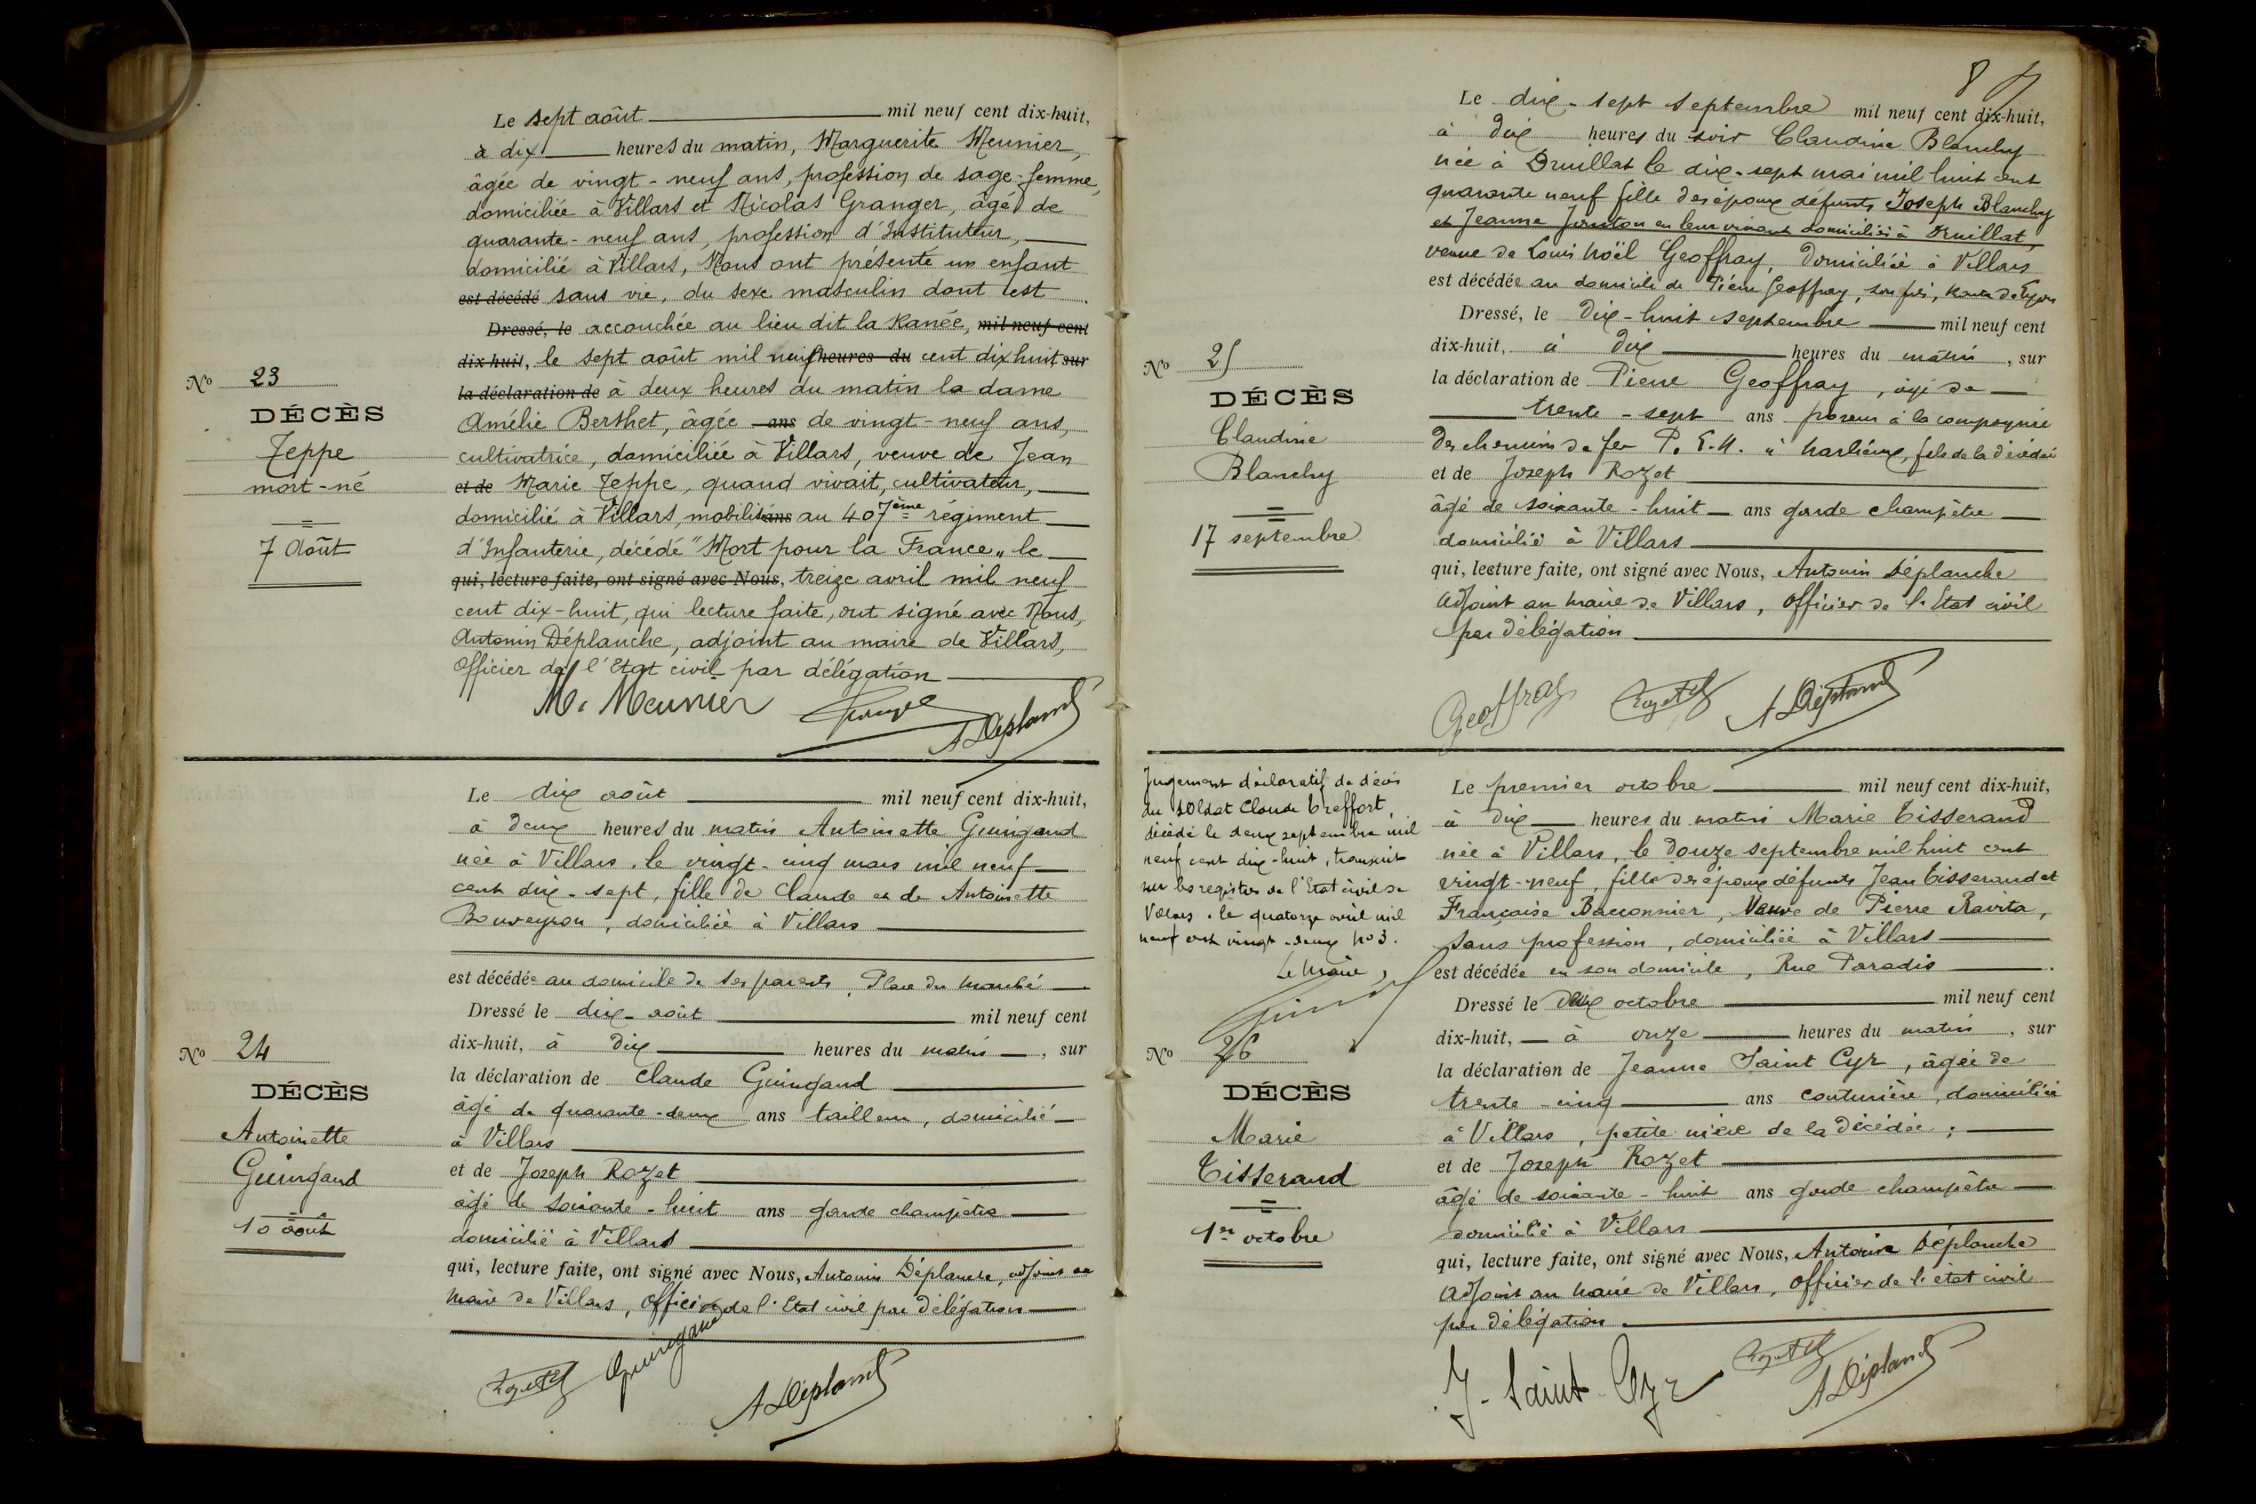 Le sept août mil neuf cent dix-huit,
à dix heures du matin, Marguerite Meunier,
âgée de vingt-neuf ans, profession de sage-femme,
domiciliée à Villars et Nicolas Granger, âgé de
quarante-neuf ans, profession d'Instituteur,
domicilié à Villars, Nous ont présenté un enfant
est décédé sans vie, du sexe masculin dont est
Dressé, le accouchée au lieu dit la Ranée, mil neuf cent
dix-huit, le sept août mil neuf heures du cent dix huit, sur
la déclaration de à deux heures du matin la dame
Amélie Berthet, âgée ans de vingt-neuf ans,
cultivatrice, domiciliée à Villars, veuve de Jean
et de Marie Jeppe, quand vivait, cultivateur,
domicilié à Villars, mobilisé ans au 407ème régiment
d'Infanterie, décédé "Mort pour la France" le
qui, lecture faite, ont signé avec Nous, treize avril mil neuf
cent dix-huit, qui lecture faite, ont signé avec Nous,
Antonin Déplanche, adjoint au maire de Villars,
Officier de l'Etat civil par délégation
M. Meunier
A Déplanche
No 23
DÉCÈS
Jeppe
mort-né
7 Août
Le dix août mil neuf cent dix-huit,
à deux heures du matin Antoinette Guingand
née à Villars, le vingt-cinq mars mil neuf
cent dix-sept, fille de Claude et de Antoinette
Bouveyron, domiciliée à Villars
est décédée au domicile de ses parents, Place du Marché
Dressé le dix août mil neuf cent
dix-huit, à dix heures du matin, sur
la déclaration de Claude Guingand
âgé de quarante-deux ans tailleur, domicilié
à Villars
et de Joseph Rozet
âgé de soixante-huit ans garde champêtre
domicilié à Villars
qui, lecture faite, ont signé avec Nous, Antonin Déplanche, adjoint au
maire de Villars, Officier de l'Etat civil par délégation
Rozet
Guingand
A Déplanche
No 24
DÉCÈS
Antoinette
Guingand
10 août
8
Le dix-sept septembre mil neuf cent dix-huit,
à dix heures du soir Claudine Blanchy
née à Druillat le dix-sept mai mil huit cent
quarante neuf fille des époux défunts Joseph Blanchy
et Jeanne en leur vivant domiciliés à Druillat,
veuve de Louis Noël Geoffray, domiciliée à Villars
est décédée au domicile de Pierre Geoffray, son fils, Route de Lyon
Dressé, le dix-huit septembre mil neuf cent
dix-huit, à dix heures du matin, sur
la déclaration de Pierre Geoffray, âgé de
trente-sept ans poseur à la compagnie
des chemins de fer P. L. M. à Marlieux, fils de la décédée
et de Joseph Rozet
âgé de soixante-huit ans garde champêtre
domicilié à Villars
qui, lecture faite, ont signé avec Nous, Antonin Déplanche
adjoint au maire de Villars, Officier de l'Etat civil
par délégation
Geoffray
Rozet
A Déplanche
No 25
DÉCÈS
Claudine
Blanchy
17 septembre
Jugement déclaratif de décès
du soldat Claude Treffort,
décédé le deux septembre mil
neuf cent dix-huit, transcrit
sur les registres de l'Etat civil de
Villars. le quatorze avril mil
neuf cent vingt-deux No 3.
Le Maire,
Le premier octobre mil neuf cent dix-huit,
à dix heures du matin Marie Tisserand
née à Villars, le douze septembre mil huit cent
vingt-neuf, fille des époux défunts Jean Tisserand et
Françoise Bacconnier, Veuve de Pierre Ravita,
sans profession, domiciliée à Villars
est décédée en son domicile, Rue Paradis
Dressé le deux octobre mil neuf cent
dix-huit, à onze heures du matin, sur
la déclaration de Jeanne Saint Cyr, âgée de
trente-cinq ans couturière, domiciliée
à Villars, petite nièce de la décédée;
et de Joseph Rozet
âgé de soixante-huit ans garde champêtre
domicilié à Villars
qui, lecture faite, ont signé avec Nous, Antonin Déplanche
adjoint au maire de Villars, Officier de l'état civil
par délégation
J. Saint Cyr
Rozet
A Déplanche
No 26
DÉCÈS
Marie
Tisserand
1er octobre